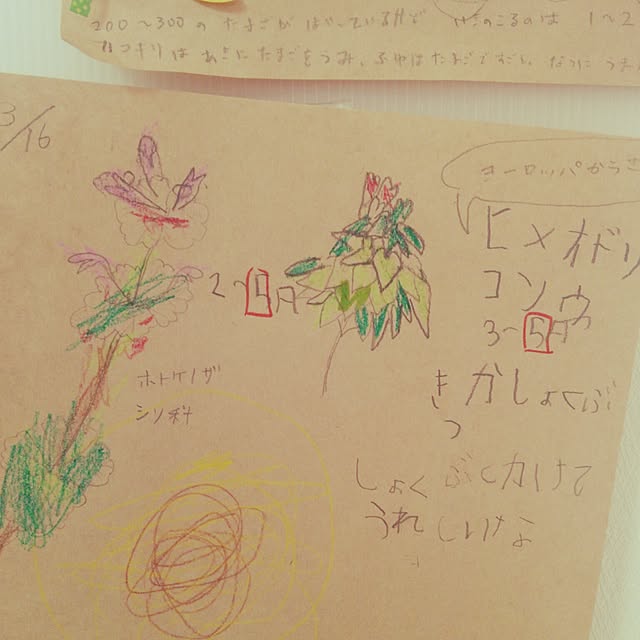 200〜300の たまごが はいっているけど
いきのこるのは 1〜2
カマキリは あきに たまごをうみ、ふゆはたまごですごし、なつに
3/16
ヨーロッパから
ヒメオドリ
コソウ
2〜5月
3〜5月
ホトケノザ
シソ科
きつかしょくぶ
しょくぶつかけて
うれしいなよ